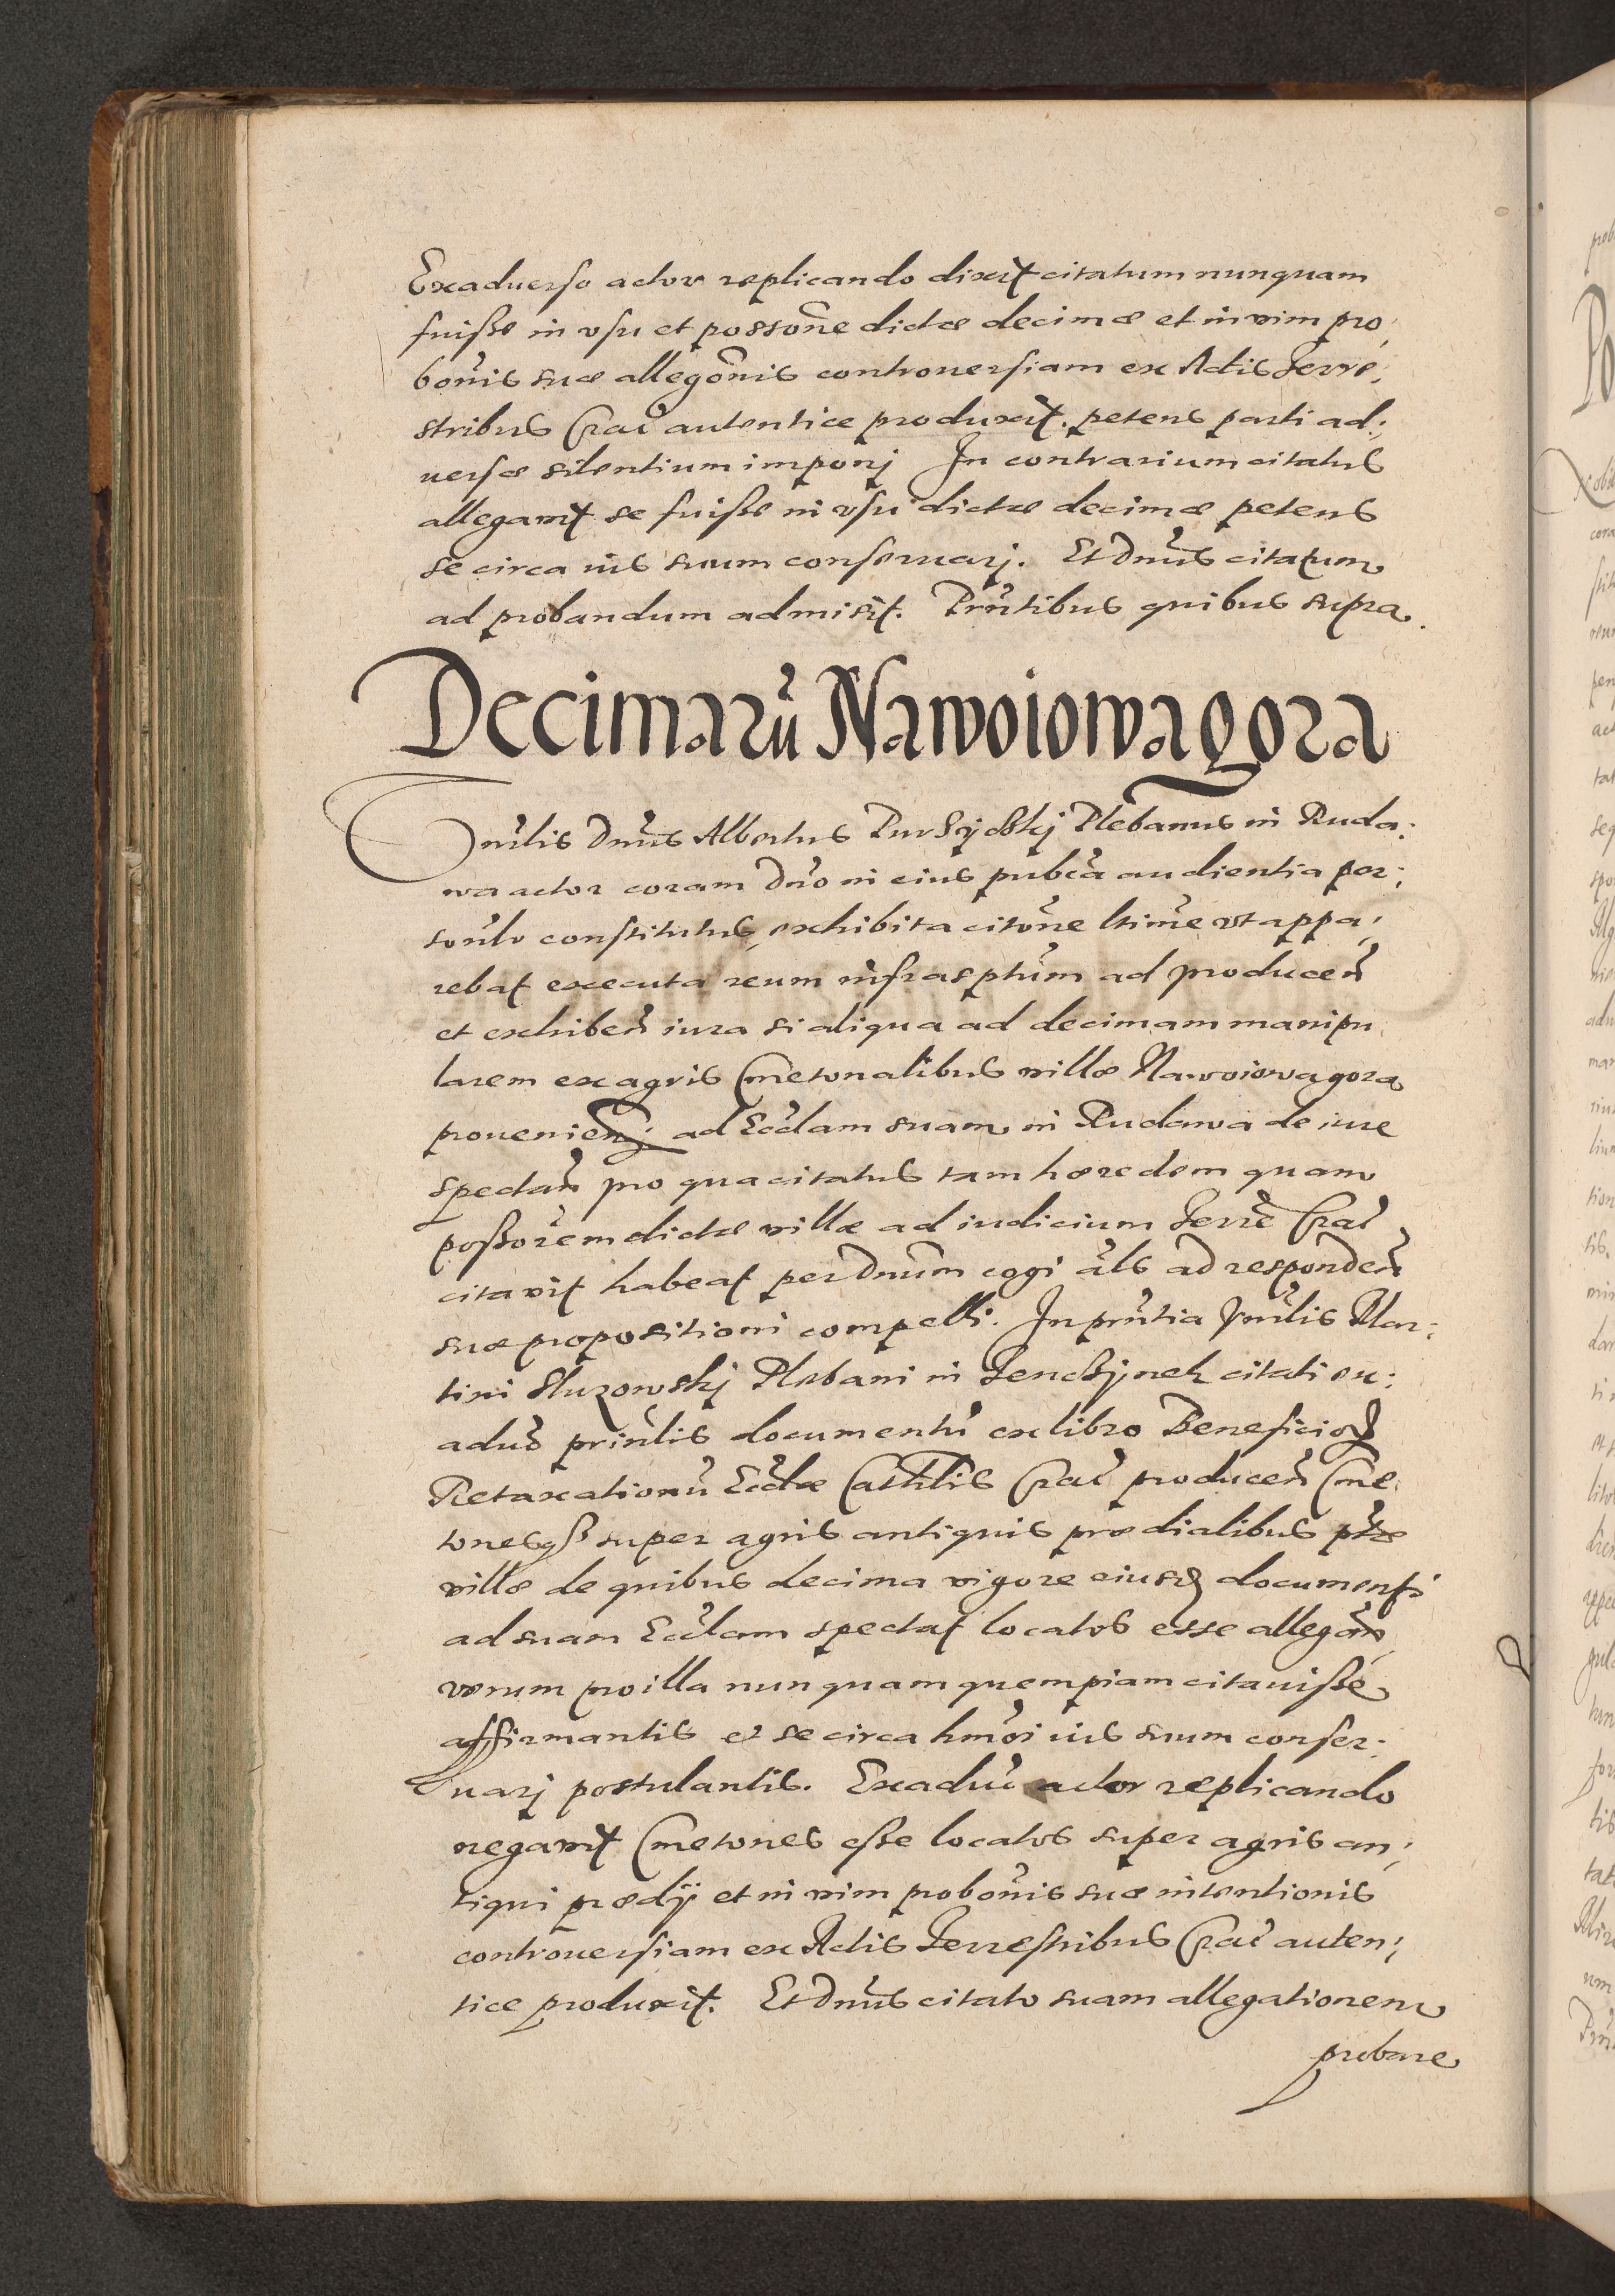 Exaduerso actor replicando dixit citatum nunquam
fuisse in vsu et possone dictæ decimæ et in vim pro,
bonis suæ allegonis controuersiam ex Actis Terre,
stribus Crac autentice produxit. petens parti ad:
uersæ silentium imponj In contrarium citatus
allegavit se fuisse in vsu dictæ decimæ petens
se circa ius suum conseruarj. Et Dnus citatum
ad probandum admisit. Pruntibus quibus supra
Decimarū Nawoiowagora
Dnus Albertus Plebanus in Ruda:
wa actor coram Dno in eius pubca audientia per:
constitutus, exhibita citone ltime vt appa,
rebat executa reum infrasptum ad producen
et exhiben iura si aliqua ad decimam manipu
larem ex agris Cmetonalibus villæ Nawoiowagora
prouenien ad Eccllam suam in Rudawa de iure
spectan pro qua citatus tam hæredem quam
possorem dictæ villæ ad iudicium Terre Crac
citavit habeat per Dnum cogi als ad responden
suæ propositioni compelli. In pruntia Mar:
tini Sluzowskj Plebani in citati ex:
adus documentu ex libro Beneficior
Retaxationu Eccliæ Cathlis Crac producen Cme
tonesqs super agris antiquis prædialibus
villæ de quibus decima vigore eiusd documenti
ad suam Ecclam spectat locatos esse allegan
verum pro illa nunquam quempiam citauisse
affirmantis et se circa hmoi ius suum conser:
uarj postulantis. Exadu actor replicando
negavit Cmetones esse locatos super agris an,
tiqui prædij et in vim probonis suæ intentionis
controuersiam ex Actis Terrestribus Crac auten,
tice produxit. Et Dnus citato suam allegationem
probare